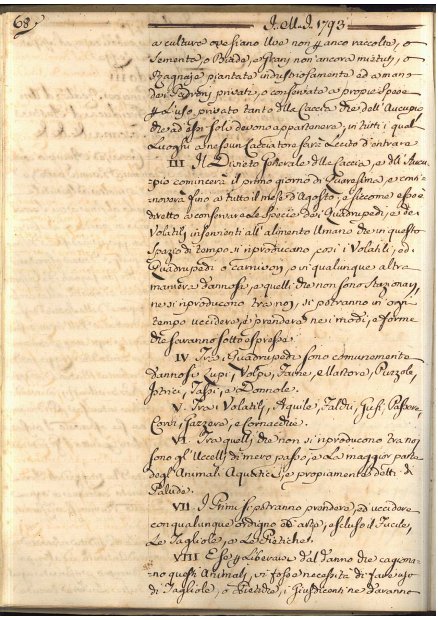 68
I. M. I. 1793
a culture ove siano Uve non p anco raccolte, o
Sementa, o Biade, e frani non ancora mietuti, o
Ragnaje piantate industriosamente ed a mano
dei Padroni privati, o conservate a proprie spese
p l'uso privato tanto della Caccia che dell'Aucupio
che ad essi soli devono appartenere, in tutti i quali
Luoghi a nessun Cacciatore sarà Lecito d'entrare
III Il Divieto Generale della Caccia, e dell' Aucu-
pio comincerà il primo giorno di Quaresima, e conti-
nuerà fino a tutto il mese d'Agosto, e siccome esso è
diretto a conservare Le Specie dei Quadrupedi, e de
Volatili inservienti all' alimento Umano che in questo
spazio di tempo si riproducano, così i Volatili, ed
Quadrupedi o carnivori, o in qualunque altra
maniera dannosi, e quelli che non sono stazionarj,
ne si riproducono tra noj, si potranno in ogni
tempo uccidere, e prendere ne i modi, e forme
che saranno sotto espresse.
IV Tra i Quadrupedi sono comunemente
dannosi Lupi, Volpi, Faine, e Martore, Puzzole,
Istrici, Tassi, e Donnole.
V. Tra i Volatilj, Aquile, Falchi, Gufi, Passere,
Corvi, Gazzere, e Cornacchie.
VI. Tra quelli che non si riproducono tra noi
sono gl' Uccelli di mero passo, e La maggior parte
degl' Animali Aquatici, e propiamente detti di
Palude.
VII I Primi si potranno prendere, ed uccidere
con qualunque ordigno ed arte, escluso il Fucile,
Le Tagliole, e Le Pietiche.
VIII E se p Liberarsi dal danno che cagiona-
no questi Animali, vi fosse necessità di fare uso
di Tagliole, o Pietiche, i Giusdicenti ne daranno